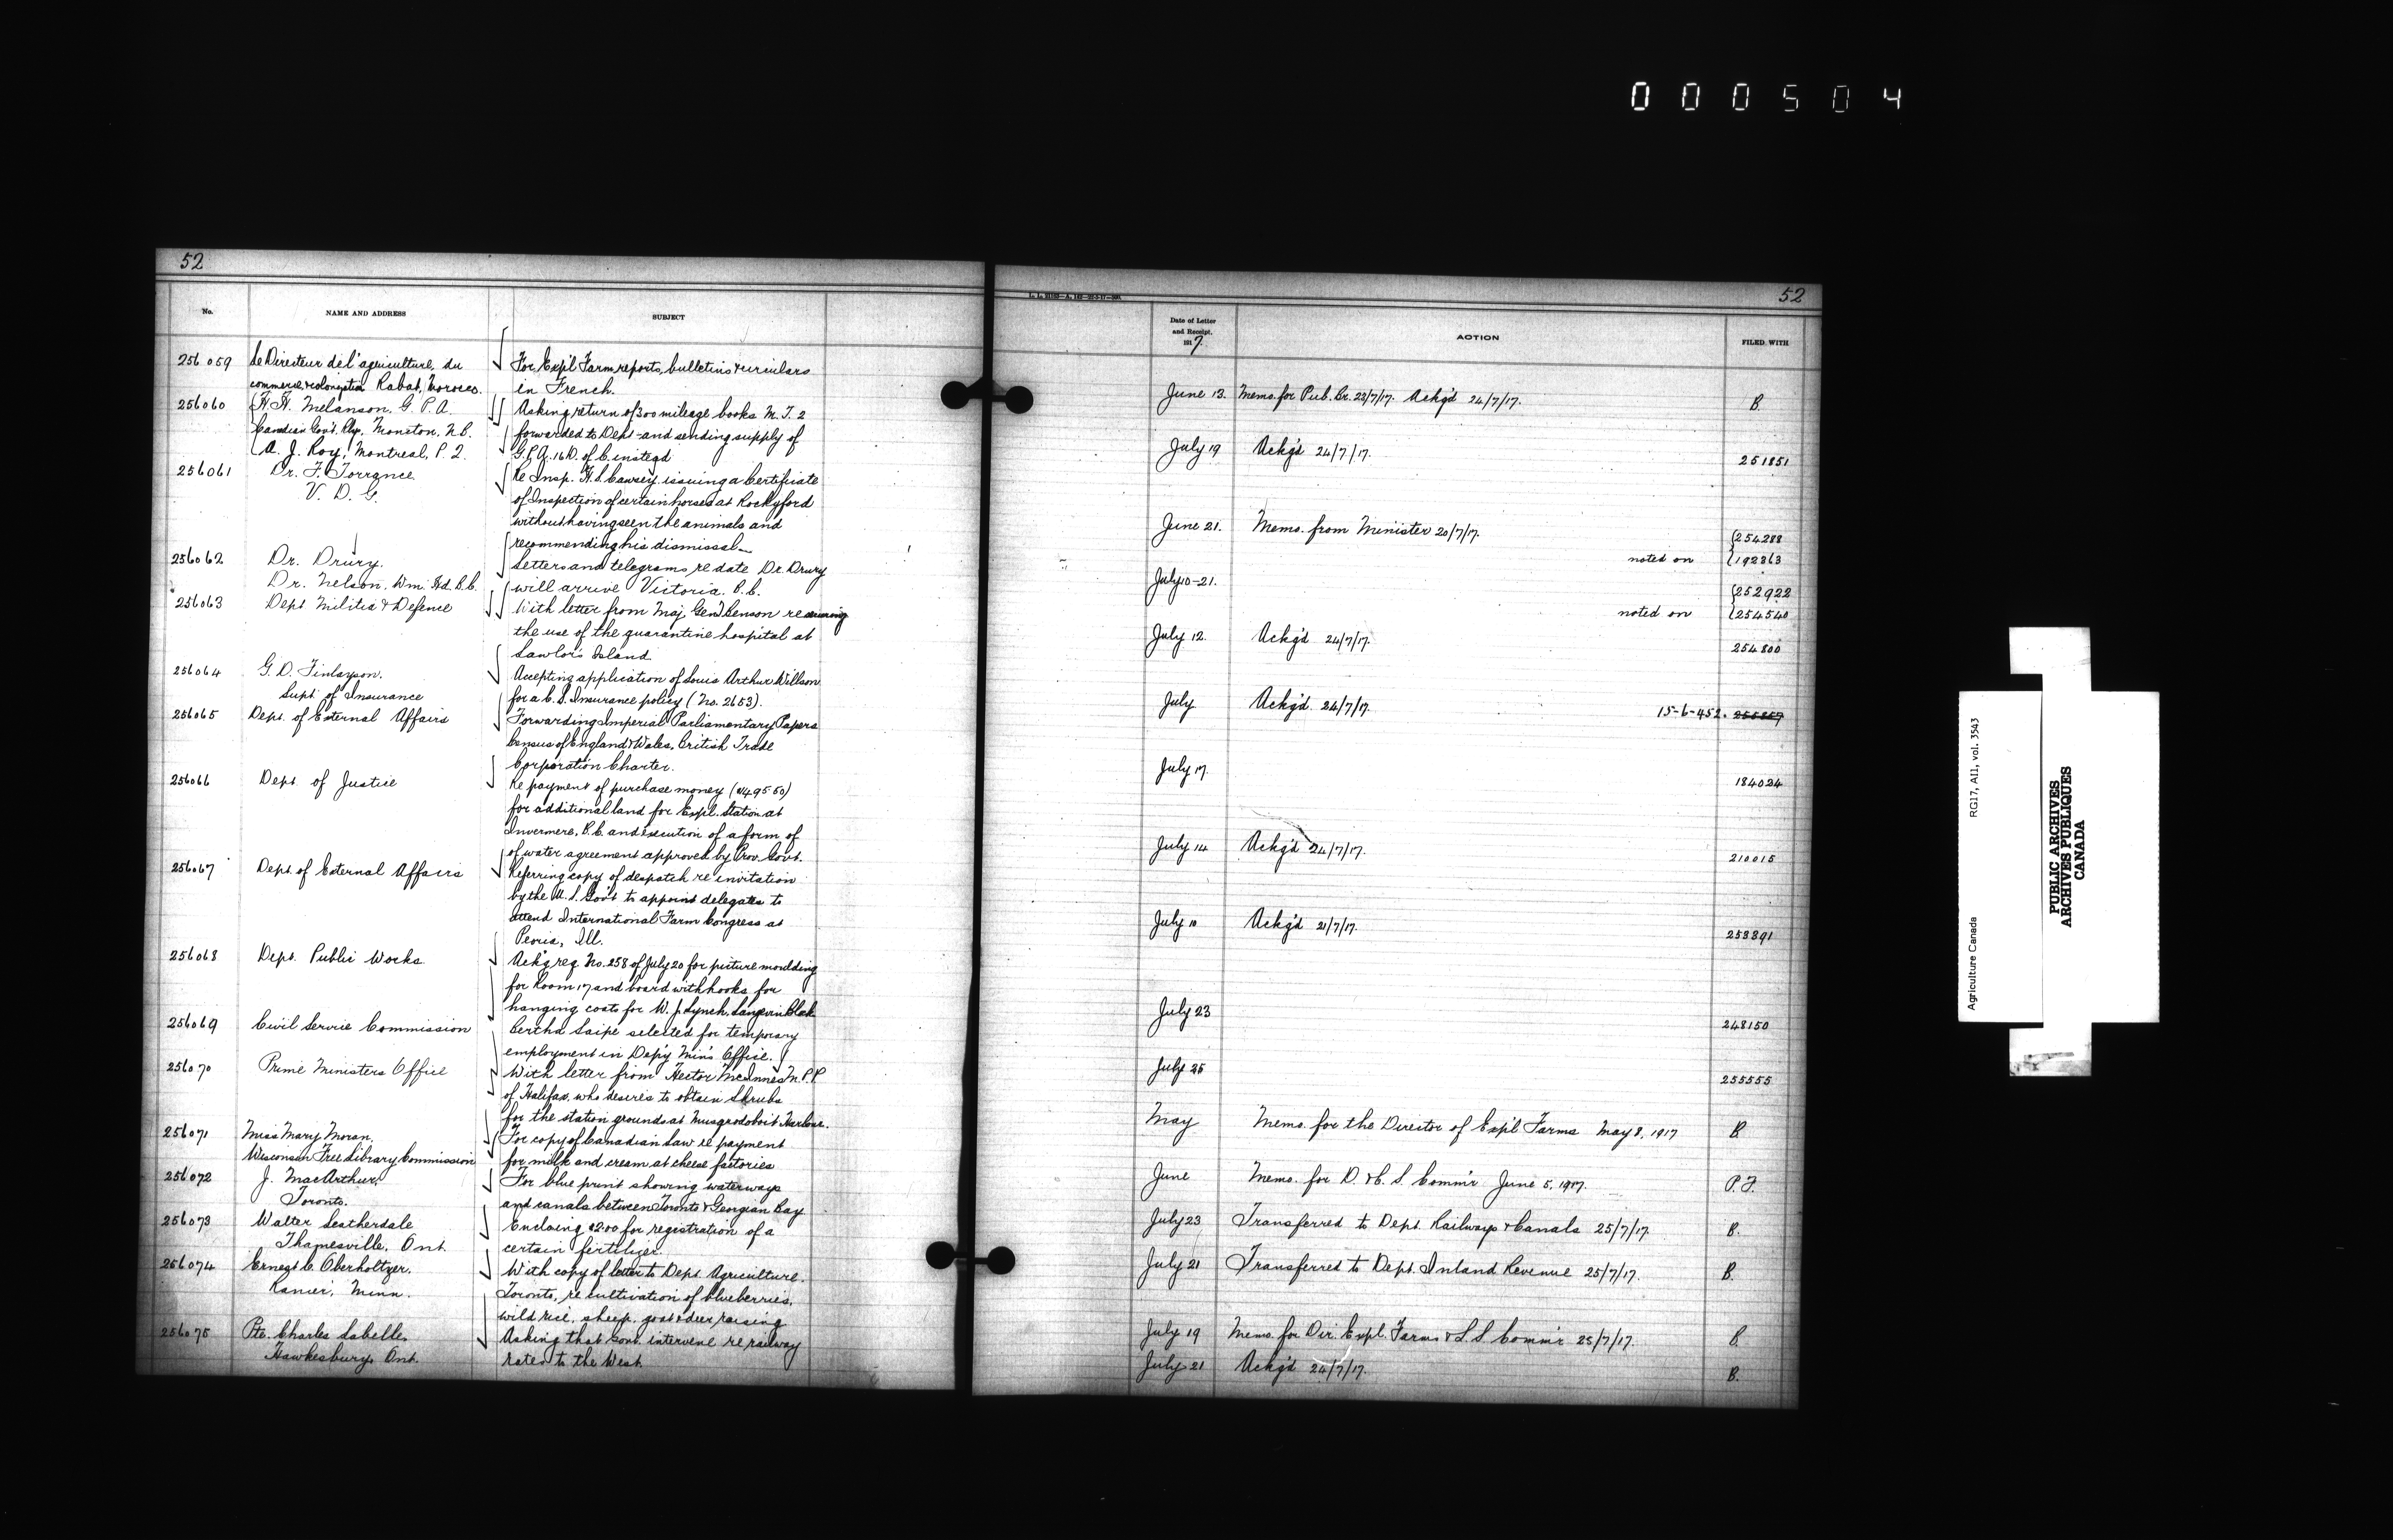 000504
52
No.
NAME AND ADDRESS
SUBJECT
256059 Le Directeur de l'agriculture, du
commerce & colonization Rabat, Morocco.
For Exp'l Farm reports, bulletins & circulars
in French.
256060 H. H. Melanson, G. P. A.
Canadian Gov't. Rly. Moncton, N.B.
A. J. Roy, Montreal, P. Q.
Asking return of 300 mileage books M. T. 2
forwarded to Dept. and sending supply of
G.P.A. 16 D. of C. instead
256061 Dr. F. Torrance
V. D. G.
Re Insp. H. S. Cawsey issuing a Certificate
of Inspection of certain horses at Rockyford
without having seen the animals and
recommending his dismissal
256062 Dr. Drury.
Dr. Nelson, Wm. Hd. B.C.
Letters and telegrams re date Dr. Drury
will arrive Victoria, B.C.
256063 Dept. Militia & Defence
With letter from Maj. Gen'l Benson re securing
the use of the quarantine hospital at
Lawlor's Island
256064 G. D. Finlayson.
Supt. of Insurance
Accepting application of Louis Arthur Willson
for a C. S. Insurance policy (No. 2653).
256065 Dept. of External Affairs
Forwarding Imperial Parliamentary Papers
Census of England & Wales, British Trade
Corporation Charter.
256066 Dept. of Justice
Re payment of purchase money
for additional land for Expl. Station at
Invermere, B.C. and execution of a form of
of water agreement approved by Prov. Govt.
256067 Dept. of External Affairs
Referring copy of despatch re invitation
by the U. S. Gov't to appoint delegates to
attend International Farm Congress at
Peoria, Ill.
256068 Dept. Public Works
Ackg req. No. 258 of July 20 for picture moulding
for Room 17 and board with hooks for
hanging coats for W. J. Lynch, Langevin Block
256069 Civil Service Commission
Bertha Saipe selected for temporary
employment in Dep'y Min's Office.
256070 Prime Ministers Office
With letter from Hector McInnes M.P.P.
of Halifax, who desires to obtain Shrubs
for the station grounds at Musquodoboit Harbour.
256071 Miss Mary Moran,
Wisconsin Free Library Commission
For copy of Canadian Law re payment
for milk and cream at cheese factories
256072 J. MacArthur,
Toronto.
For blue print showing waterways
and canals between Toronto & Georgian Bay
256073 Walter Leatherdale
Thamesville, Ont.
Enclosing $2.00 for registration of a
certain fertilizer.
256074 Ernest C. Oberholtzer.
Ranier, Minn.
With copy of letter to Dept. Agriculture.
Toronto, re cultivation of blueberries,
wild rice, sheep, goat & deer raising
256075 Pte. Charles Labelle,
Hawkesbury, Ont.
Asking that Govt. intervene re railway
rates to the West
52
Date of Letter
and Receipt.
1917.
ACTION
FILED WITH
June 13. Memo. for Pub. Br. 23/7/17. Ackg'd 24/7/17. B.
July 19 Ackg'd 24/7/17. 251851
June 21. Memo. from Minister 20/7/17. 254288
noted on 192363
July 10-21. 252922
noted on 254540
July 12. Ackg'd 24/7/17. 254800
July Ackg'd 24/7/17. 15-6-452.
July 17. 184024
July 14 Ackg'd 24/7/17. 210015
July 10 Ackg'd 21/7/17. 253391
July 23 248150
July 25 255555
May Memo. for the Director of Exp'l Farms May 8, 1917 B.
June Memo. for D. & C. S. Comm'r June 5, 1917. P.F.
July 23 Transferred to Dept. Railways & Canals 25/7/17. B.
July 21 Transferred to Dept. Inland Revenue 25/7/17. B.
July 19 Memo. for Dir. Expl. Farms & L.S. Comm'r 25/7/17. B.
July 21 Ackg'd 24/7/17. B.
Agriculture Canada RG17, AII, vol. 3543
PUBLIC ARCHIVES
ARCHIVES PUBLIQUES
CANADA